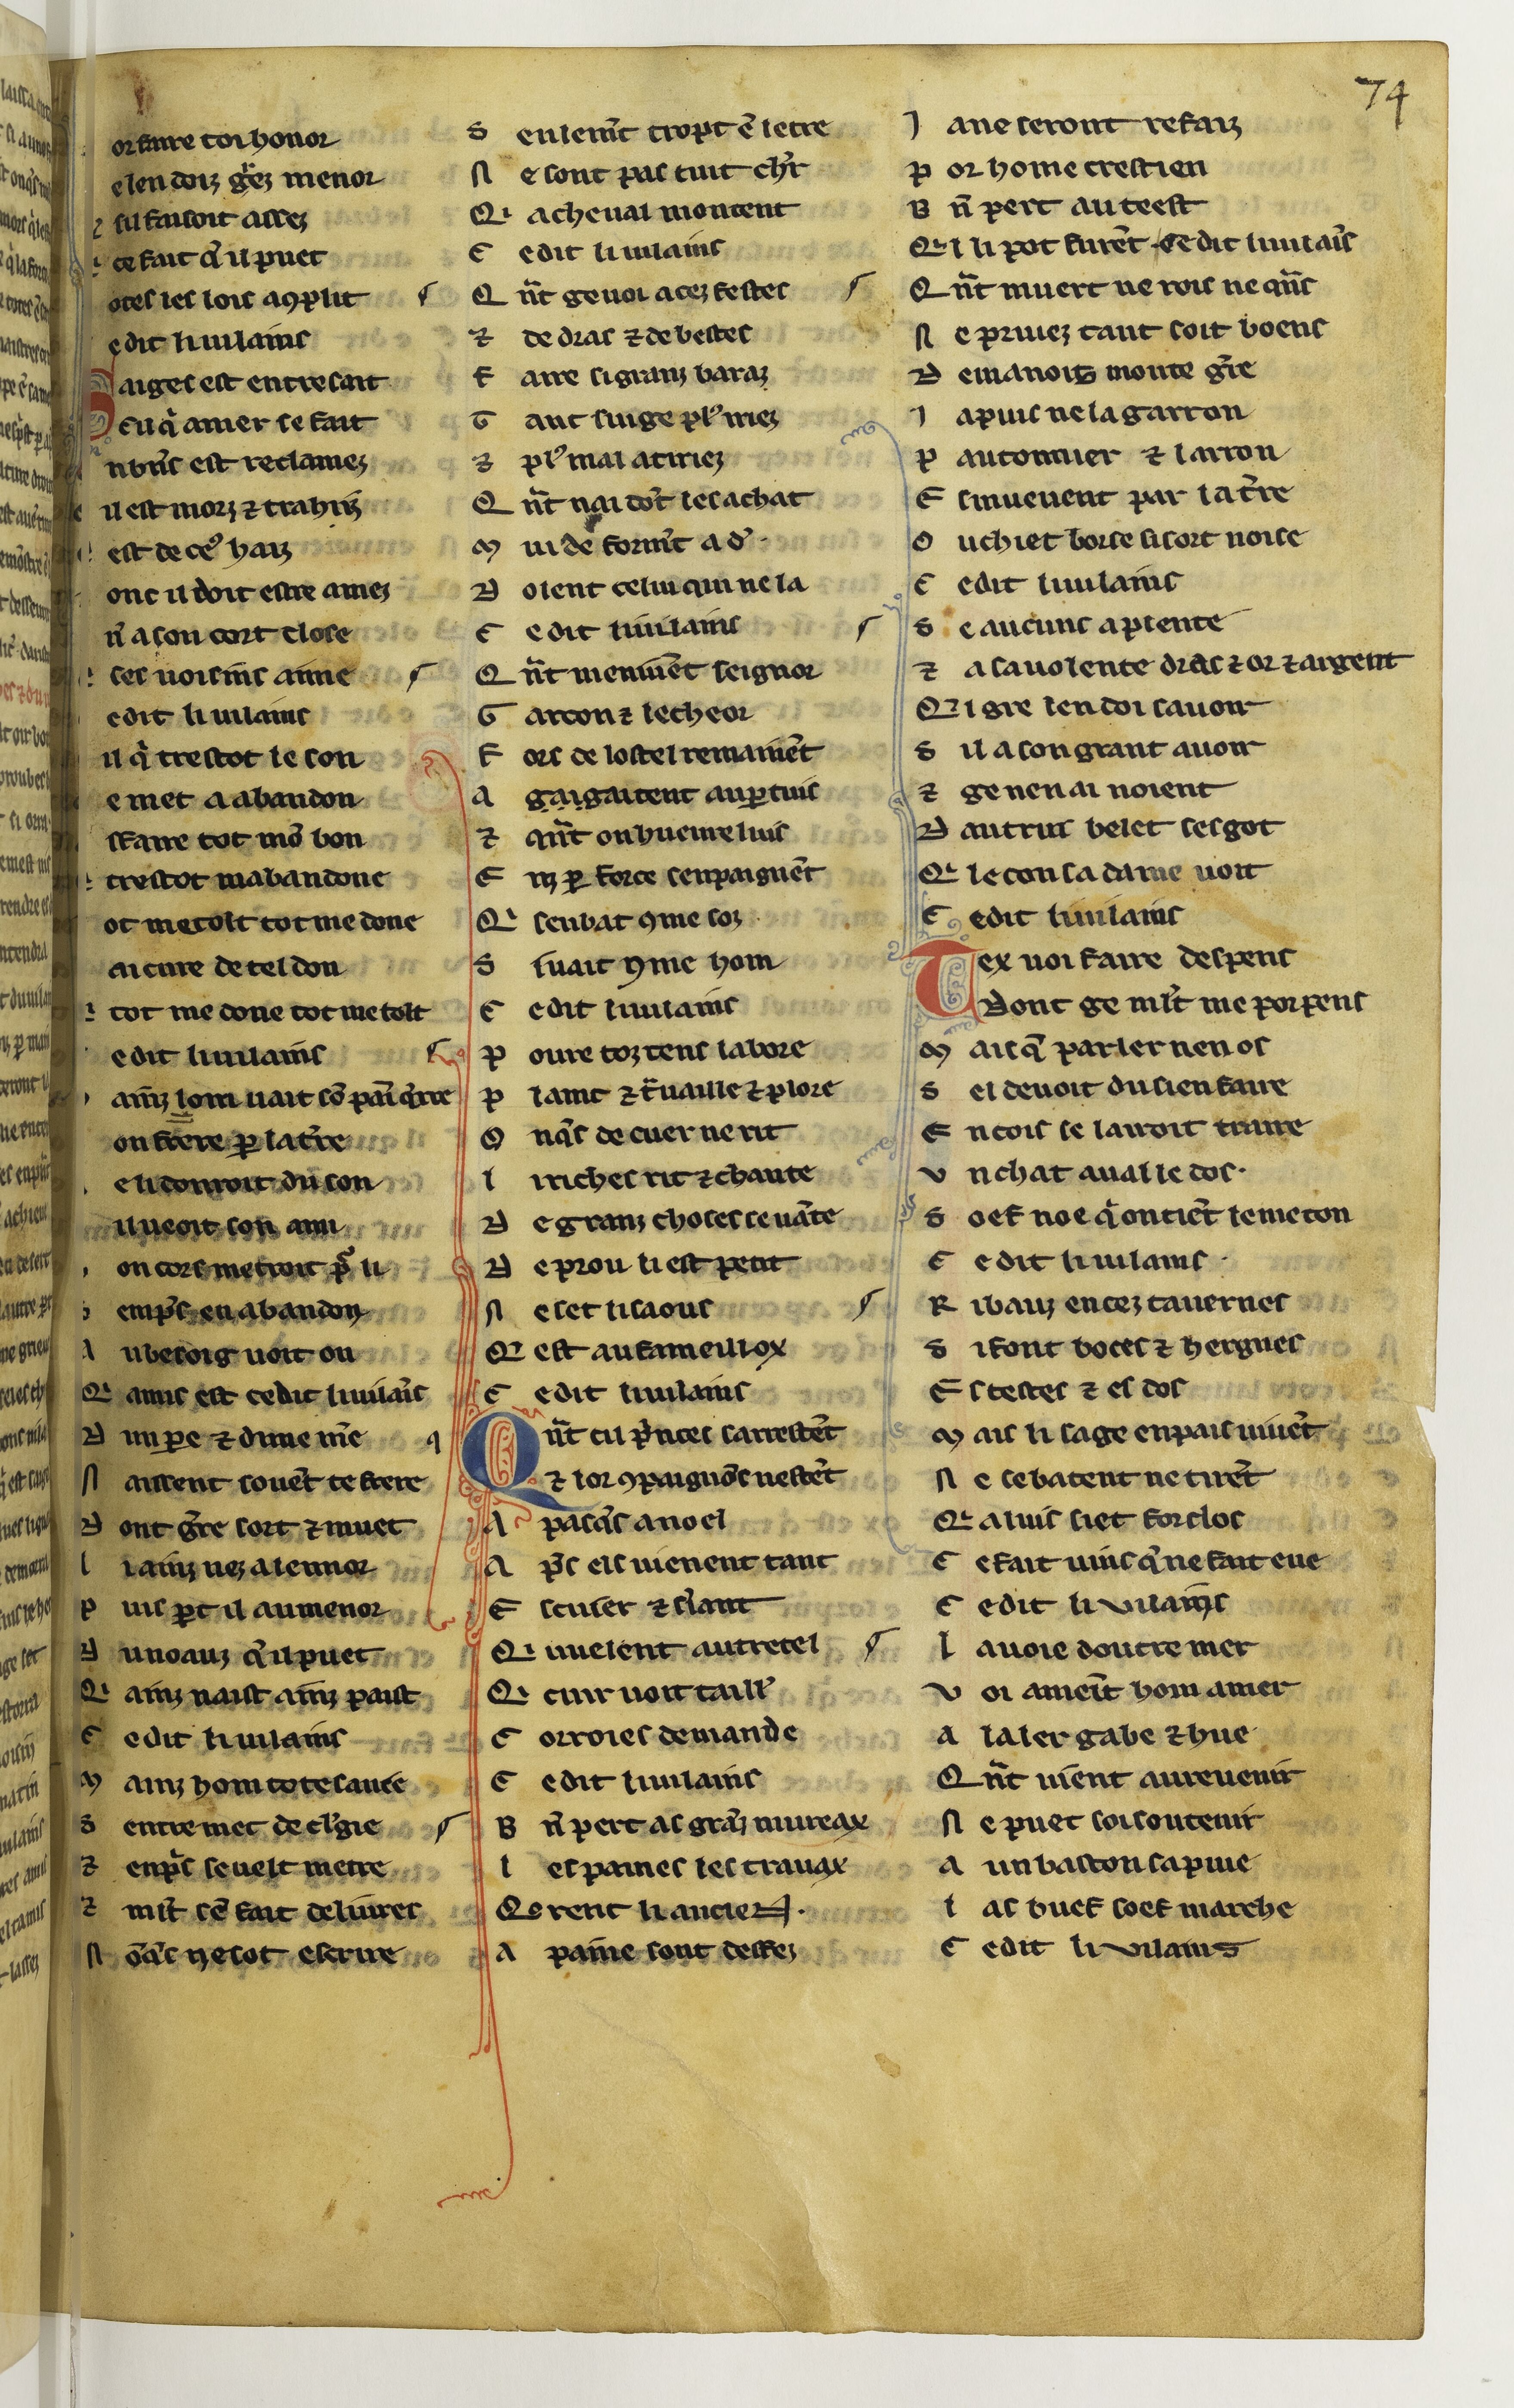 74
or faire toi honor
e len doiz g̃ez menor
sil faisoit assez
ce fait q̃ il puet
otes les lois aꝯplit
e dit li uilains
Saiges est entresait
Ceu q̾ amer se fait
n bñs est reclamez
il est morz ⁊ trahiz
est de ceꝰ haiz
onc il doit estre amez
n̄ a son cort close
ses uoisins aime
e dit li uilains
il q̾ trestot le son
e met a abandon
faire tot mō bon
trestot mabandone
ot me tolt tot me done
ai cure de tel don
tot me done tot me tolt
e dit li uilains
ainz lom uait
on frere ꝑ la t̾re
e li donroit du son
il ueoit son ami
on cors metroit
emp̃s en abandon
A u besoig uoit on
Qͥ amis est ce dit li uilaīs
D un pe ⁊ dune m̃e
N aissent souēt te frere
D ont g̃re sort ⁊ muet
L i ainz nez a lennor
P uis ꝑt il au menor
D u noauz q̃ il puet
Qͥ ainz naist ainz paist
C e dit li uilains
M ainz hom tote sa uie
S entremet de cl̾gie
⁊ enp̃s se uelt metre
⁊ ml̃t sē fait deliures
N ōq̃s ne sot escrire
S eulem̃t trop̃t ē letre
N e sont pas tuit ch̾r
Qͥ a cheual montent
C e dit li uilains
Q ñt ge uoi a cez festes
⁊ de dras ⁊ de bestes
F aire si granz baraz
T ant sui ge plꝰ iriez
⁊ plꝰ mal atiriez
Q ñt nai dōt les achat
M ui de form̃t a dꝰ
D oient celui qui ne la
C e dit li uilains
Q ñt meniuēt seignor
G arcon ⁊ lecheor
F ors de lostel remainēt
A gaigaitent au ꝑtuis
⁊ qñt on hueure luis
E nz ꝑ force senpaignēt
Qͥ sen bat ꝯme soz
S en uait ꝯme hom
C e dit li uilains
P oure toz tens labore
P laint ⁊ t̃uaille ⁊ plore
O nq̃s de cuer ne rit
L i riches rit ⁊ chante
D e granz choses se uāte
D e prou li est petit
N e set li saous
Qͥ est au fameillox
C e dit li uilains
Q ñt cil p̾nces sarrestēt
⁊ lor ꝯpaignōs uestēt
A pasq̃s a noel
A p̃s els uienent tant
E scuier ⁊ s̾iant
Qͥ uuelent autretel
Qͥ cuir uoit taillꝰ
C orroies demande
C e dit li uilains
B ñ pert as grāz mureax
L es paines les trauax
Qͤrent li ancien.
A paine sont deffez
J a ne seront refaiz
P or home crestien
B ñ pert au teest
Qͥ l li pot furēt. Ce dit li uilaīs
Q ñt muert ne rois ne q̃ns
N e priuez tant soit boens
D emanois monte g̃re
J a puis ne la garron
P autonnier ⁊ larron
E smueuent par la t̾re
O u chiet borse si sort noise
C e dit li uilains
S e aucuns a plente
⁊ a sa uolente dras ⁊ or ⁊ argent
Qͥ l gre len doi sauoir
S il a son grant auoir
⁊ ge nen ai noient
D autrui belet ses got
Qͥ le con sa dame uoit
C e dit li uilains
Tex uoi faire despens
Dont ge ml̃t me porpens
M ais q̃ parler nen os
S el deuoit du sien faire
E ncois se lairoit traire
V n chat aual le dos.
S oef noe q̾ on tiēt le meton
C e dit li uilains.
R ibauz en cez tauernes
S i font boces ⁊ hergnes
E s testes ⁊ es dos
M ais li sage en pais uiuēt
N e se batent ne tirēt
Qͥ a luis siet forclos
C e fait uins q̃ ne fait eue
C e dit li vilains
L a uoie doutre mer
V oi amēt hom amer
A laler gabe ⁊ hue
Q ñt uient au reuenir
N e puet soi soutenir
A un baston sapuie
L as buef soef marche
C e dit li vilains